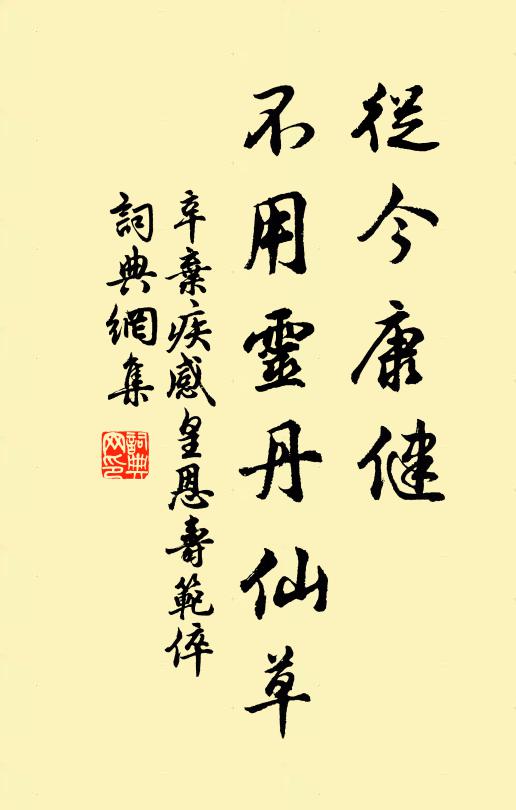 從今康健
不用靈丹仙草
辛棄疾感皇恩壽範倅
詞典網集
詞典網印